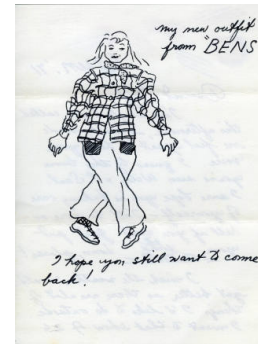 my new outfit
from "BENS
I hope you still want to come
back!